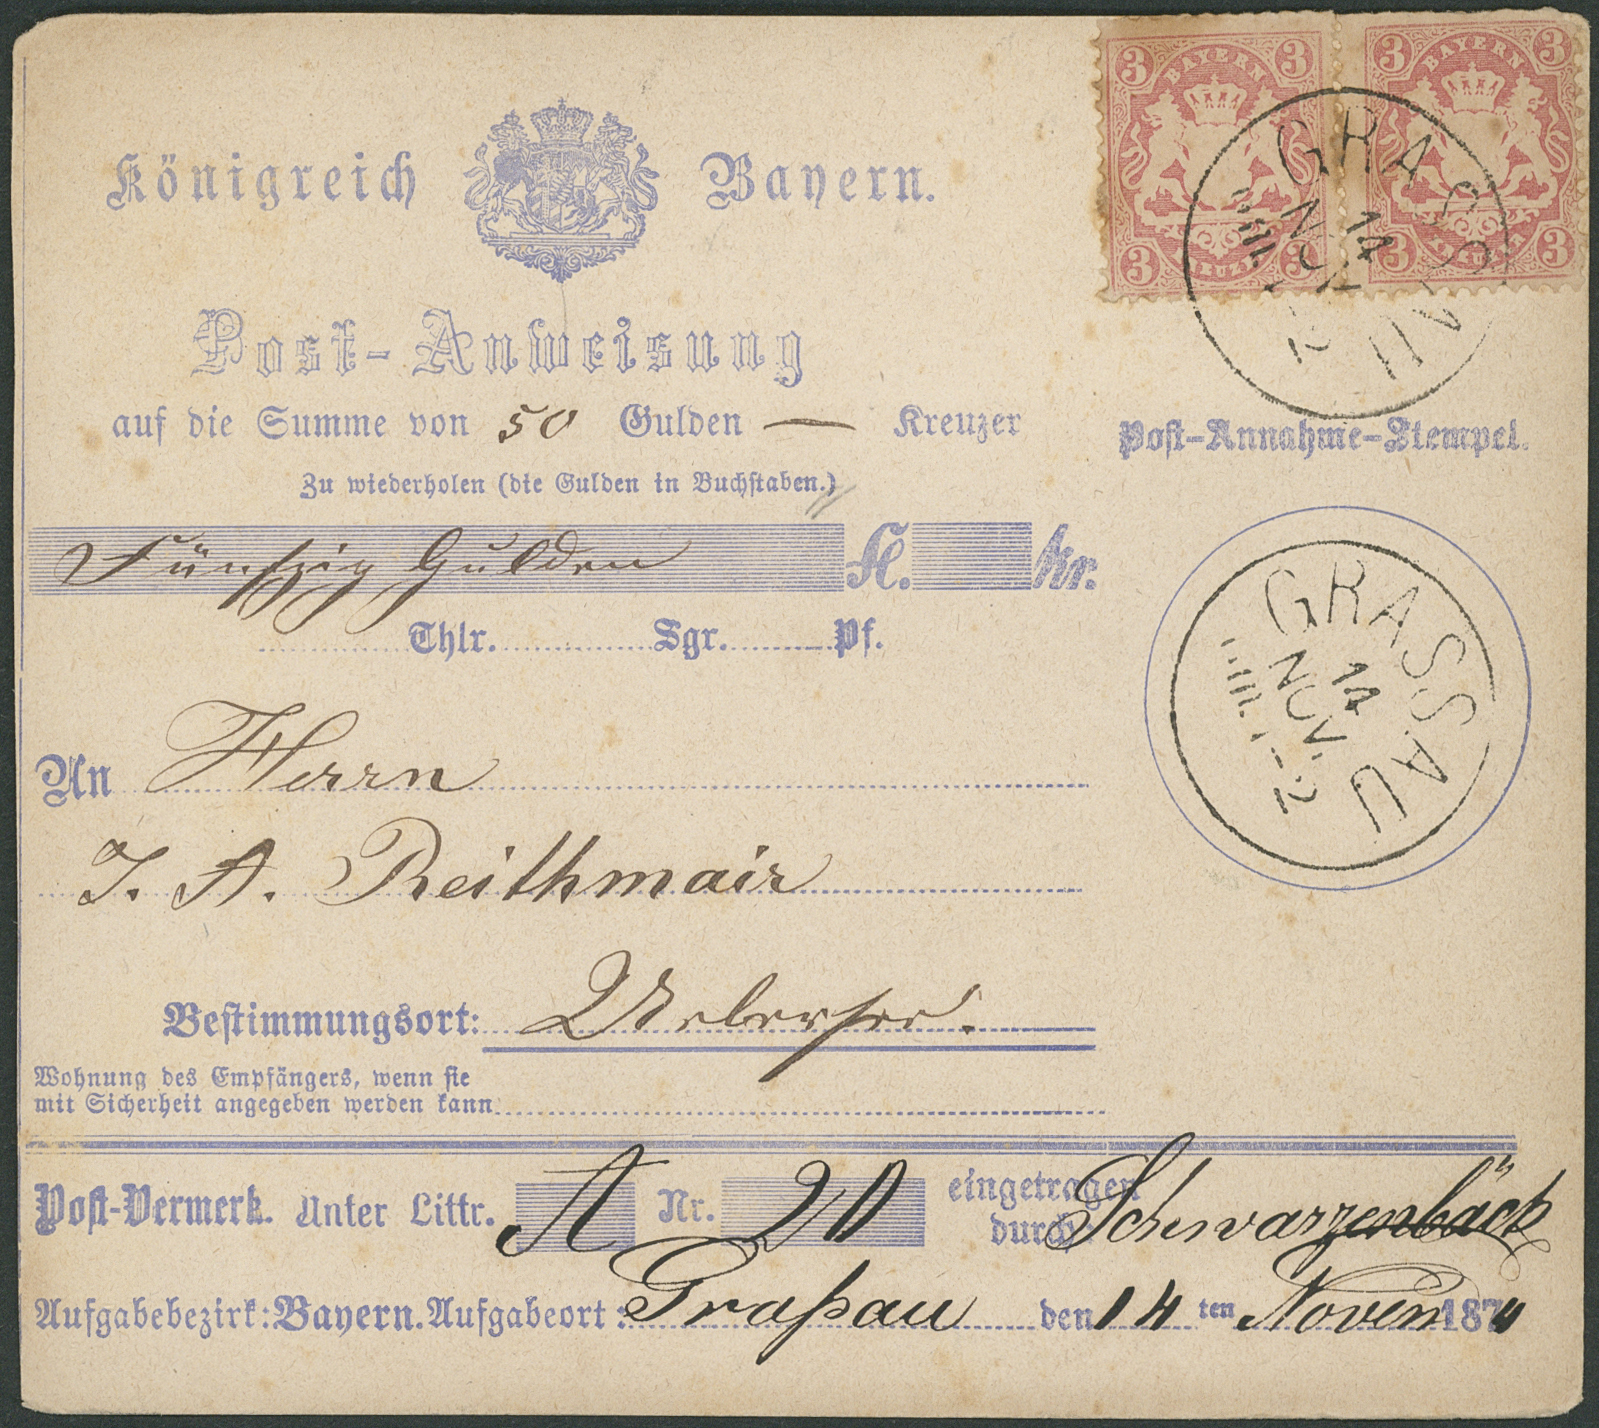 3 BAYERN 3
3 KREUZER 3
3 BAYERN 3
3 KREUZER 3
GRASSAU
14
NOV.
Königreich Bayern.
Post-Anweisung
auf die Summe von 50 Gulden — Kreuzer
Post-Annahme-Stempel.
Zu wiederholen (die Gulden in Buchstaben.)
Fünfzig Gulden fl. kr.
Thlr. Sgr. Pf.
GRASSAU
14
NOV.
An Herrn
J. A. Reithmair
Bestimmungsort: Uebersee.
Wohnung des Empfängers, wenn sie
mit Sicherheit angegeben werden kann
Post-Vermerk. Unter Littr. A Nr. 20 eingetragen
durch: Schwarzenbäck
Aufgabebezirk: Bayern. Aufgabeort: Graßau den 14 ten Novem 1874